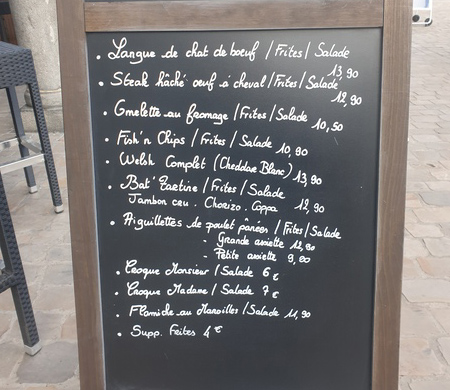 . Langue de chat de boeuf / Frites / Salade
13,90
. Steak hâché oeuf à cheval / Frites / Salade
12,90
. Omelette au fromage / Frites / Salade
10,50
. Fish'n Chips / Frites / Salade 10,90
. Welsh Complet (Cheddar Blanc) 13,90
. Bat' Tartine / Frites / Salade
Jambon cru . Chorizo . Coppa 12,90
. Aiguillettes de poulet pânées / Frites / Salade
- Grande assiette 12,90
- Petite assiette 9,90
. Croque Monsieur / Salade 6 €
. Croque Madame / Salade 7 €
. Flamiche au Maroilles / Salade 11,90
. Supp. Frites 4 €